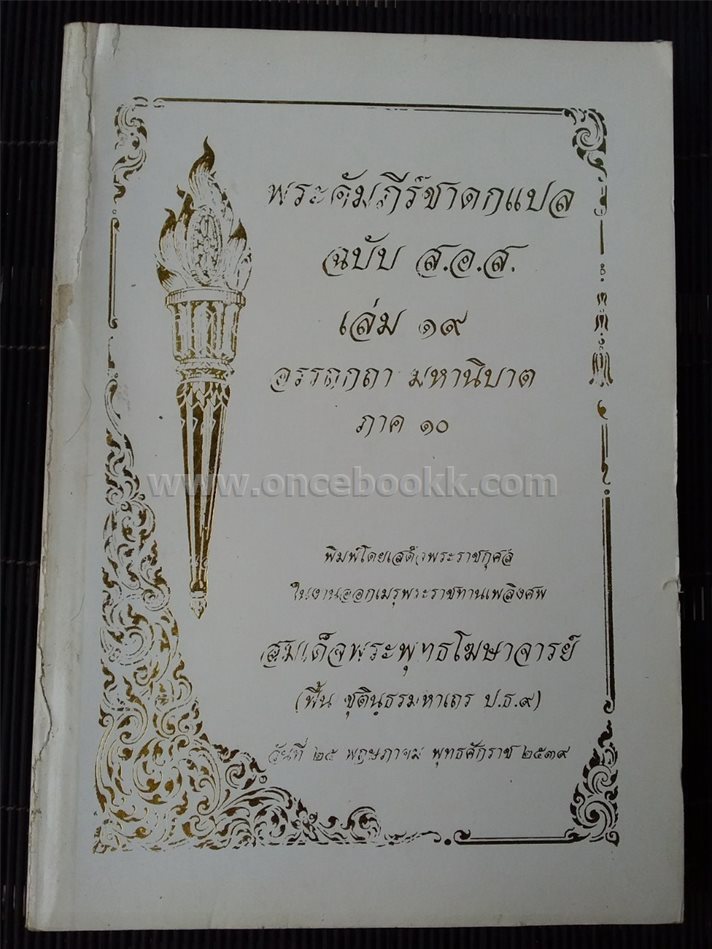 พระคัมภีร์ชาดกแปล
ฉบับ ส.อ.ส.
เล่ม ๑๙
อรรถกถา มหานิบาต
ภาค ๑๐
www.oncebookk.com
พิมพ์โดยเสด็จพระราชกุศล
ในงานออกเมรุพระราชทานเพลิงศพ
สมเด็จพระพุทธโฆษาจารย์
(ฟื้น ชุตินฺธรมหาเถร ป.ธ.๙)
วันที่ ๒๕ พฤษภาคม พุทธศักราช ๒๕๓๙